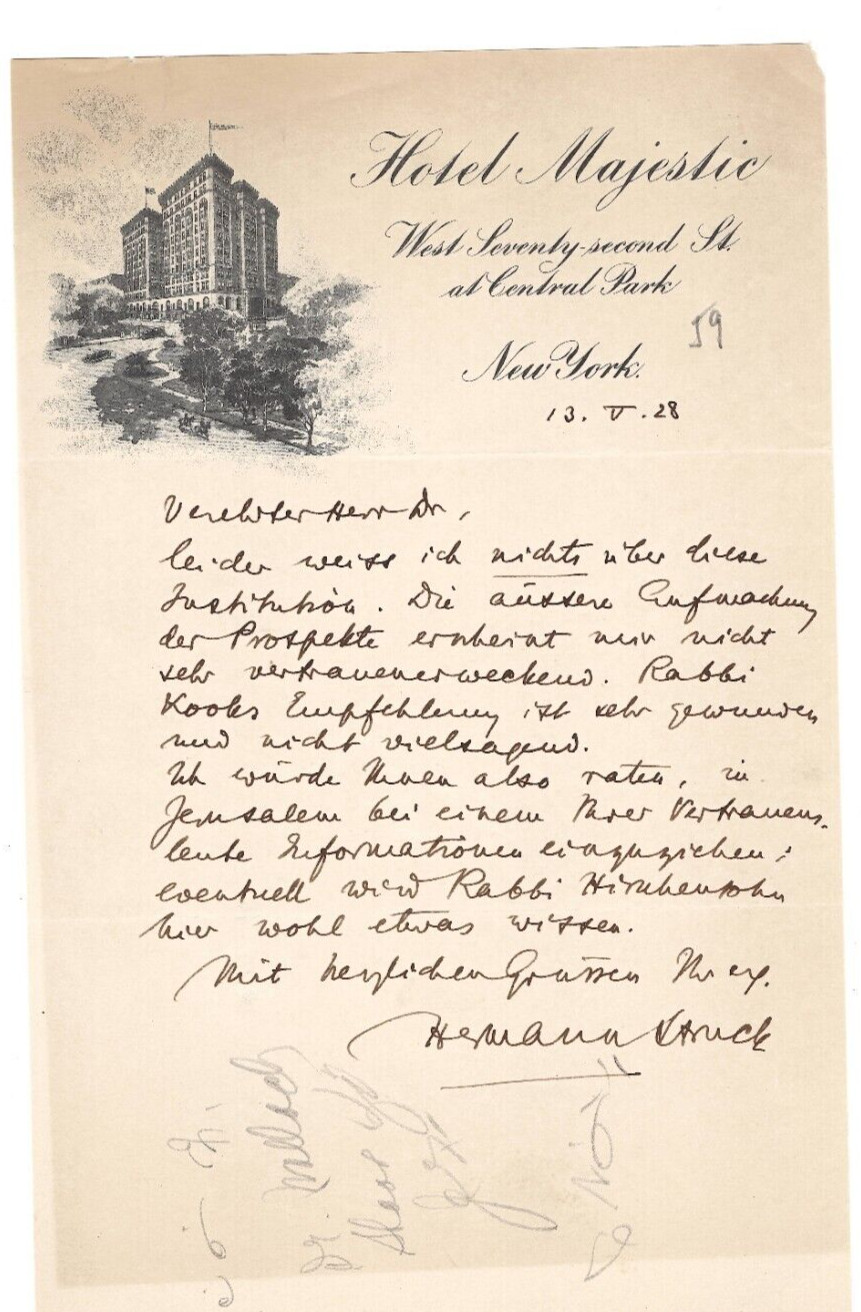 Hotel Majestic
West Seventy-second St.
at Central Park
59
New York.
13. V. 28
Verehrter Herr Dr,
leider weiss ich nichts über diese
Institution. Die äussere Aufmachung
der Prospekte erscheint mir nicht
sehr vertrauenerweckend. Rabbi
Kooks Empfehlung ist sehr gewunden
und nicht vielsagend.
Ich würde Ihnen also raten, in
Jerusalem bei einem Ihrer Vertrauens-
leute Informationen einzuziehen;
eventuell wird Rabbi Hirschensohn
hier wohl etwas wissen.
Mit herzlichen Grüssen Ihr erg.
Hermann Struck
Dr. Wallach
Shaare